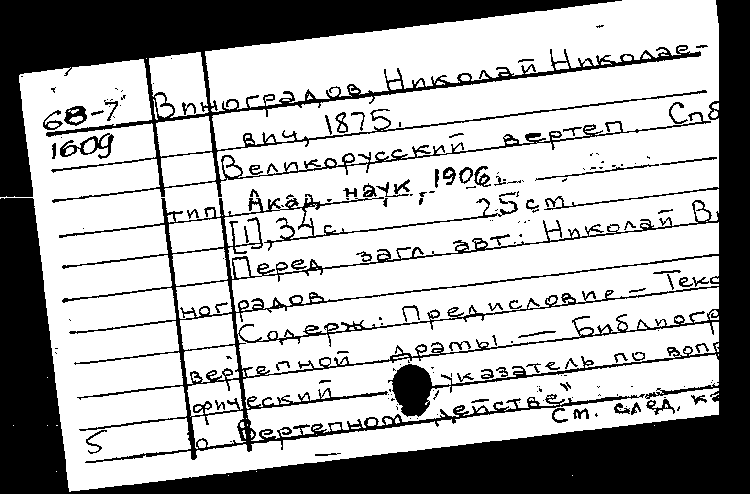 68-7 Виноградов, Николай Николае-
1609 вич, 1875.
Великорусский вертеп. Спб
тип. Акад. наук, 1906.
[1], 34 с. 25 cm.
Перед загл. авт.: Николай Ви
ноградов
Содерж.: Предисловие. – Текс
вертепной драмы. – Библиогр
фический указатель по вопр
о „Вертепном действе“
5 См. след. ка